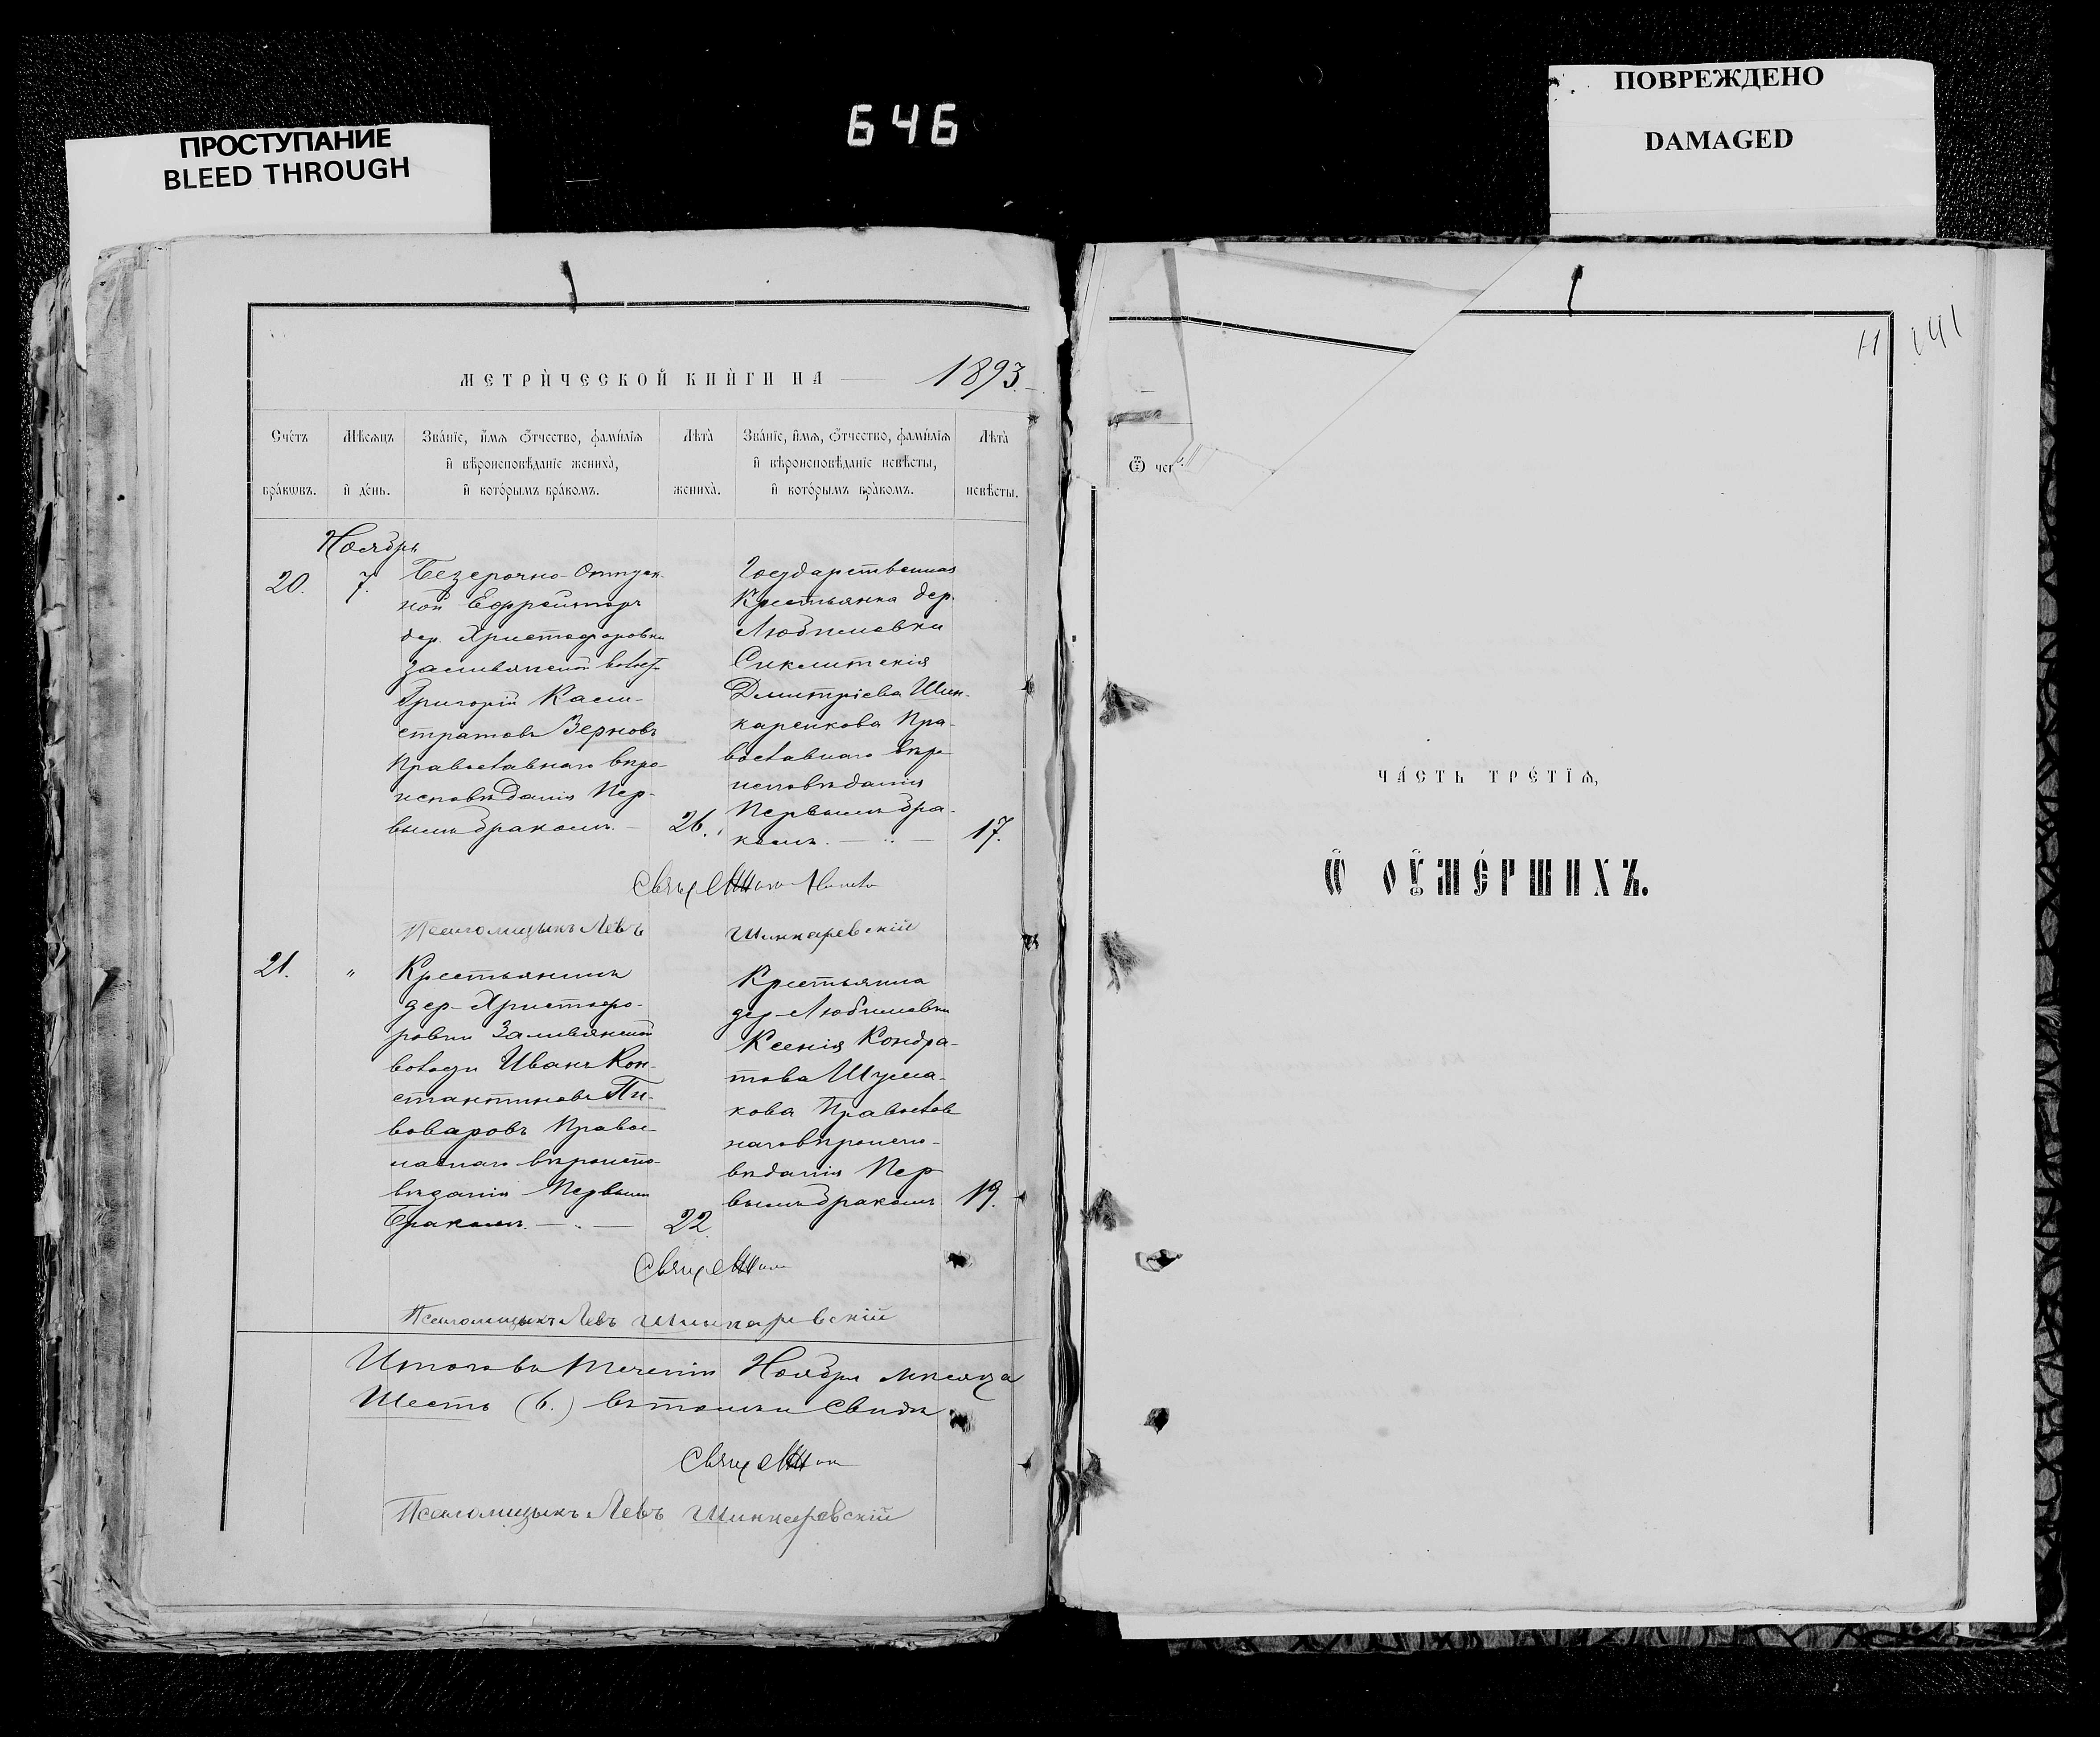 646
ПРОСТУПАНИЕ
BLEED THROUGH
ПОВРЕЖДЕНО
DAMAGED
МЕТРИ́ЧЕСКОЙ КНИ́ГИ НА 1893.
Сче́тъ
бра́кѡвъ.
Мѣ́сяцъ
и де́нь.
Зва́нїе, и́мѧ о́тчество, фами́лїѧ
и вѣроисповѣ́данїе жениха̀,
и кото́рымъ бра́комъ.
Лѣта̀
жениха̀.
Зва́нїе, и́мѧ, о́тчество, фами́лїѧ
и вѣроисповѣ́данїе невѣ́сты,
и кото́рымъ бра́комъ.
Лѣта̀
невѣ́сты.
Ноябрь
20.
7.
Безсрочно-отпуск-
ной Ефрейторъ
дер. Христофоровки
Григорій Кали-
стратовъ Зерновъ
Православнаго вѣро-
исповѣданія Пер-
вымъ бракомъ.
26.
Государственная
Крестьянка дер.
Любимовки
Синклитикія
Дмитріева Шин-
каренкова Пра-
вославнаго вѣро
исповѣданія
Первымъ бра-
комъ.
17.
Псаломщикъ Левъ Шинкаревскій
21.
"
Крестьянинъ
дер. Христофо-
ровки
волости Иванъ Кон-
стантиновъ Пи-
воваровъ Правос-
лавнаго вѣроиспо-
вѣданія Первымъ
Бракомъ.
22.
Крестьянка
дер. Любимовки
Ксенія Кондра-
това Шума-
кова Православ
наго вѣроиспо-
вѣданія Пер
вымъ бракомъ
19.
Псаломщикъ Левъ Шинкаревскій
Итого въ теченіи Ноября мѣсяца
Шесть (6.) въ томъ и свид.
Псаломщикъ Левъ Шинкаревскій
141
ЧА́СТЬ ТРЕ́ТЇѦ,
Ѽ ОУ҆МЕ́РШИХЪ.